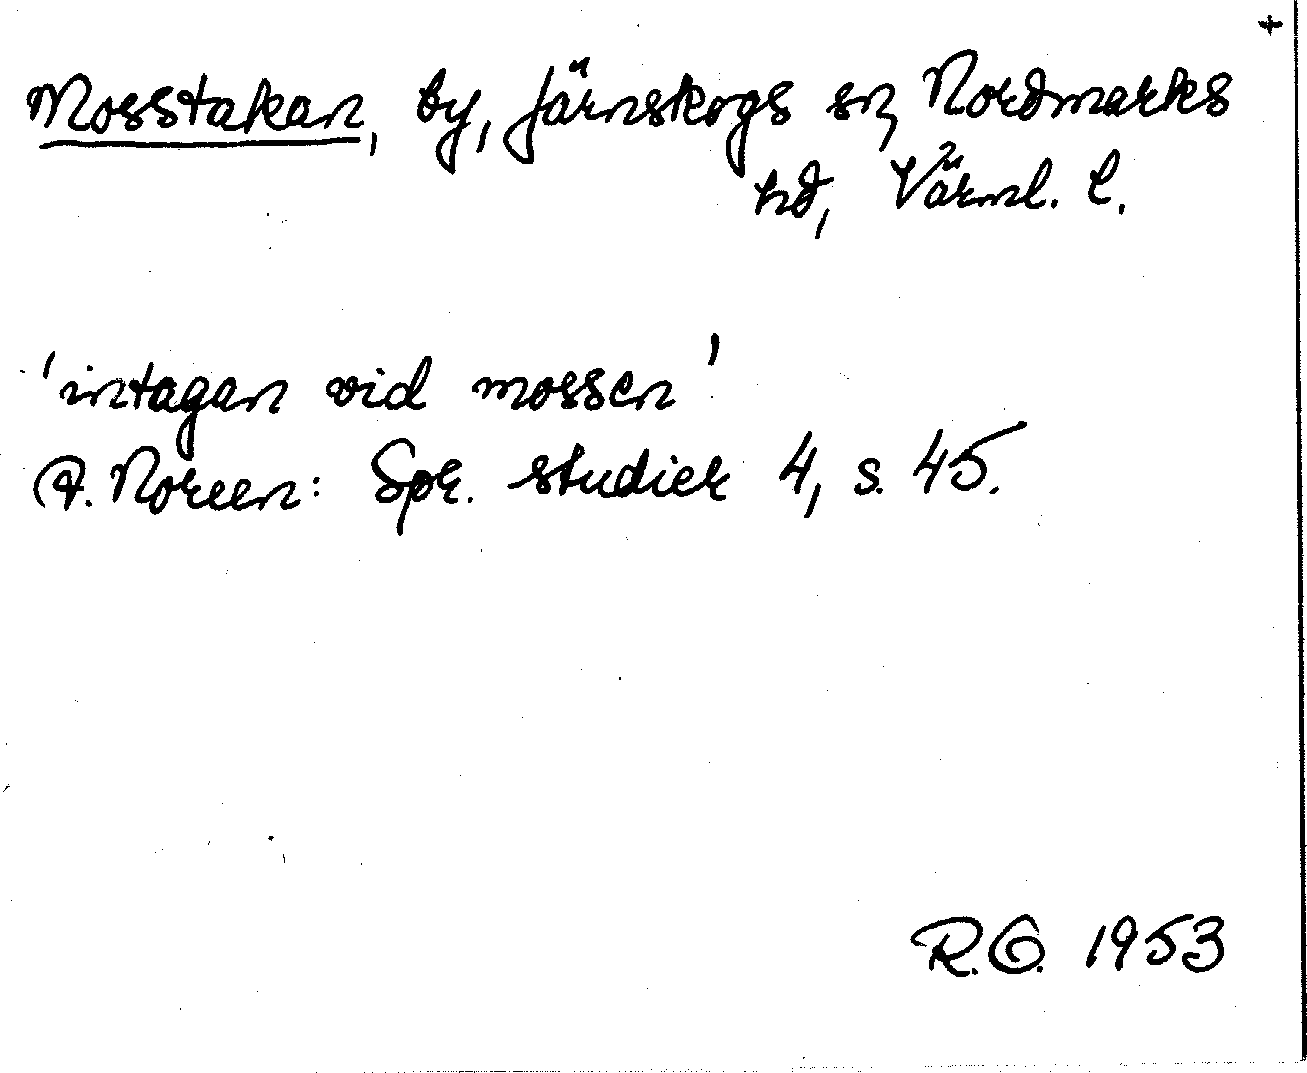 +
Mosstakan, by, Järnskogs sn, Nordmarks
hd, Värml. l.
'intagan vid mossen'
A. Noreen: Spr. studier 4, s. 45.
R.O. 1953